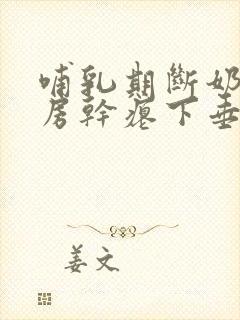 哺乳期斷奶
房幹瘪下垂
姜文